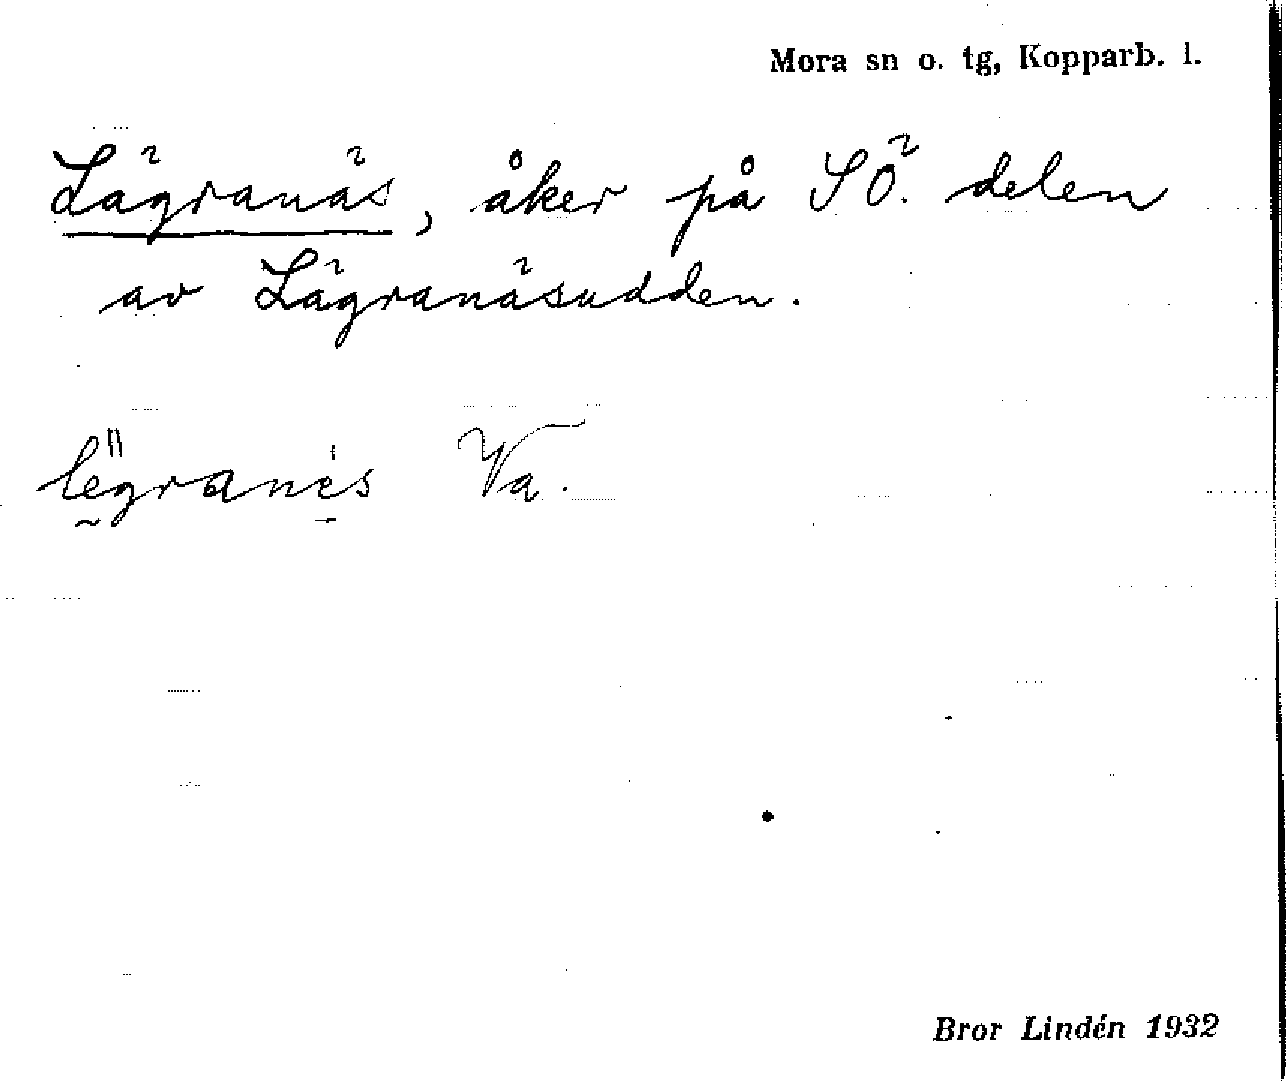 Mora sn o. tg, Kopparb. l.
Lägranäs, åker på SÖ. delen
av Lägranäsudden.
lègranès Va.
Bror Lindén 1932